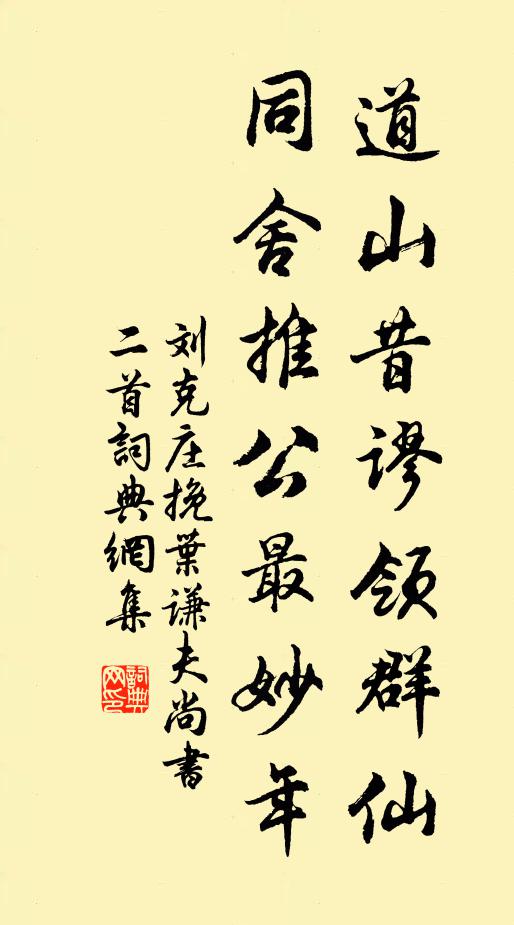 道山昔谬领群仙
同舍推公最妙年
刘克庄挽葉谦夫尚書
二首詞典網集
詞典
网印